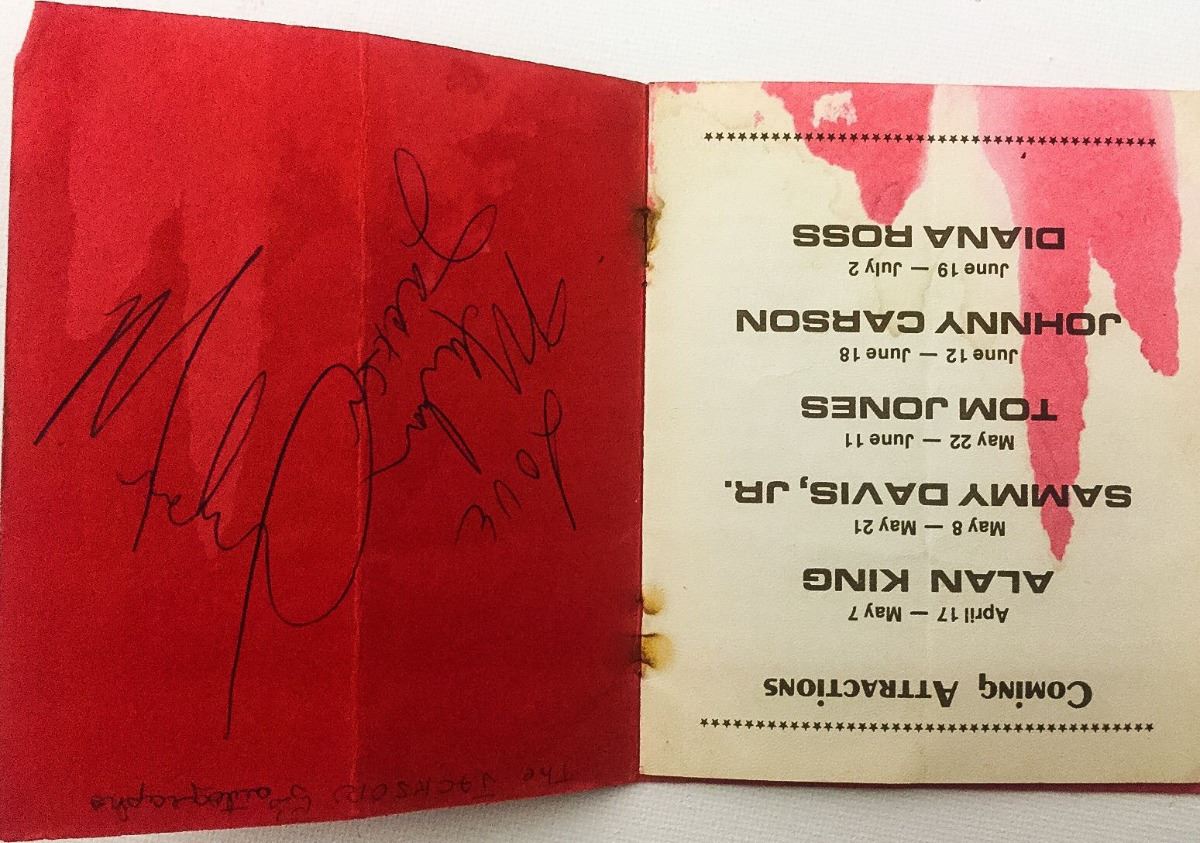 Coming Attractions
April 17 — May 7
ALAN KING
May 8 — May 21
SAMMY DAVIS, JR.
May 22 — June 11
TOM JONES
June 12 — June 18
JOHNNY CARSON
June 19 — July 2
DIANA ROSS
Love
Marlon
Jackson
The JACKSON 5 autographs